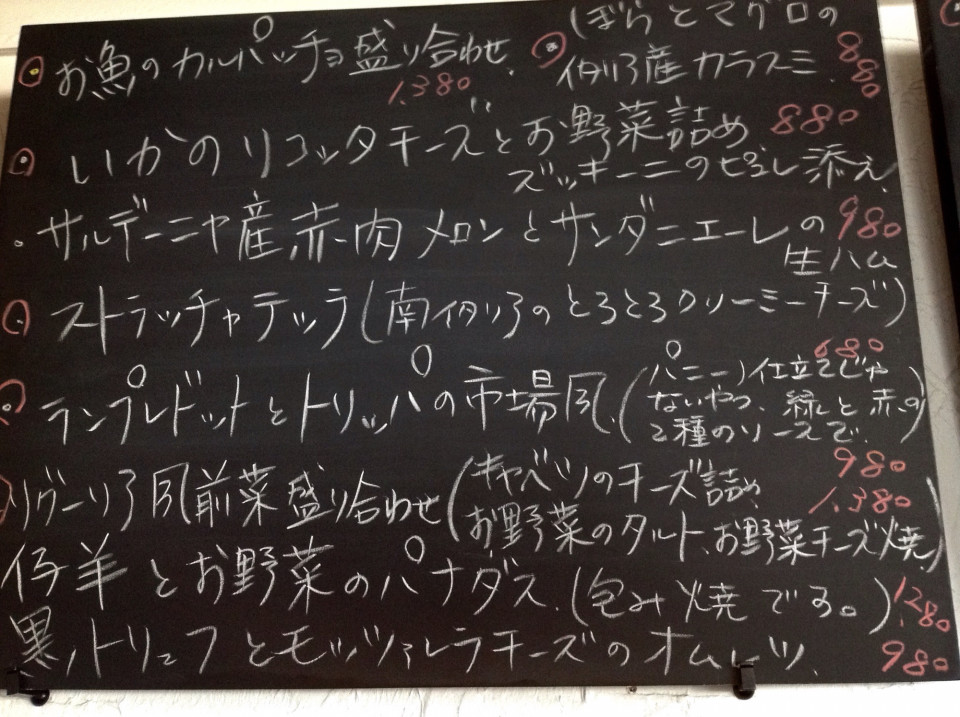 お魚のカルパッチョ盛り合わせ.
1,380
(ぼらとマグロの
イタリア産カラスミ.
880
いかのリコッタチーズとお野菜詰め 880
ズッキーニのピュレ添え.
サルデーニャ産赤肉メロンとサンダニエーレの 980
生ハム
ストラッチャテッラ(南イタリアのとろとろクリーミーチーズ)
680
ランプレドットとトリッパの市場風.
(パニーノ仕立てじゃ
ないやつ、緑と赤の
2種のソースで.)
980
リグーリア風前菜盛り合わせ
(キャベツのチーズ詰め
1,380
お野菜のタルト、お野菜チーズ焼)
仔羊とお野菜のパナダス.(包み焼です。) 1280
黒トリュフとモッツァレラチーズのオムレツ. 980